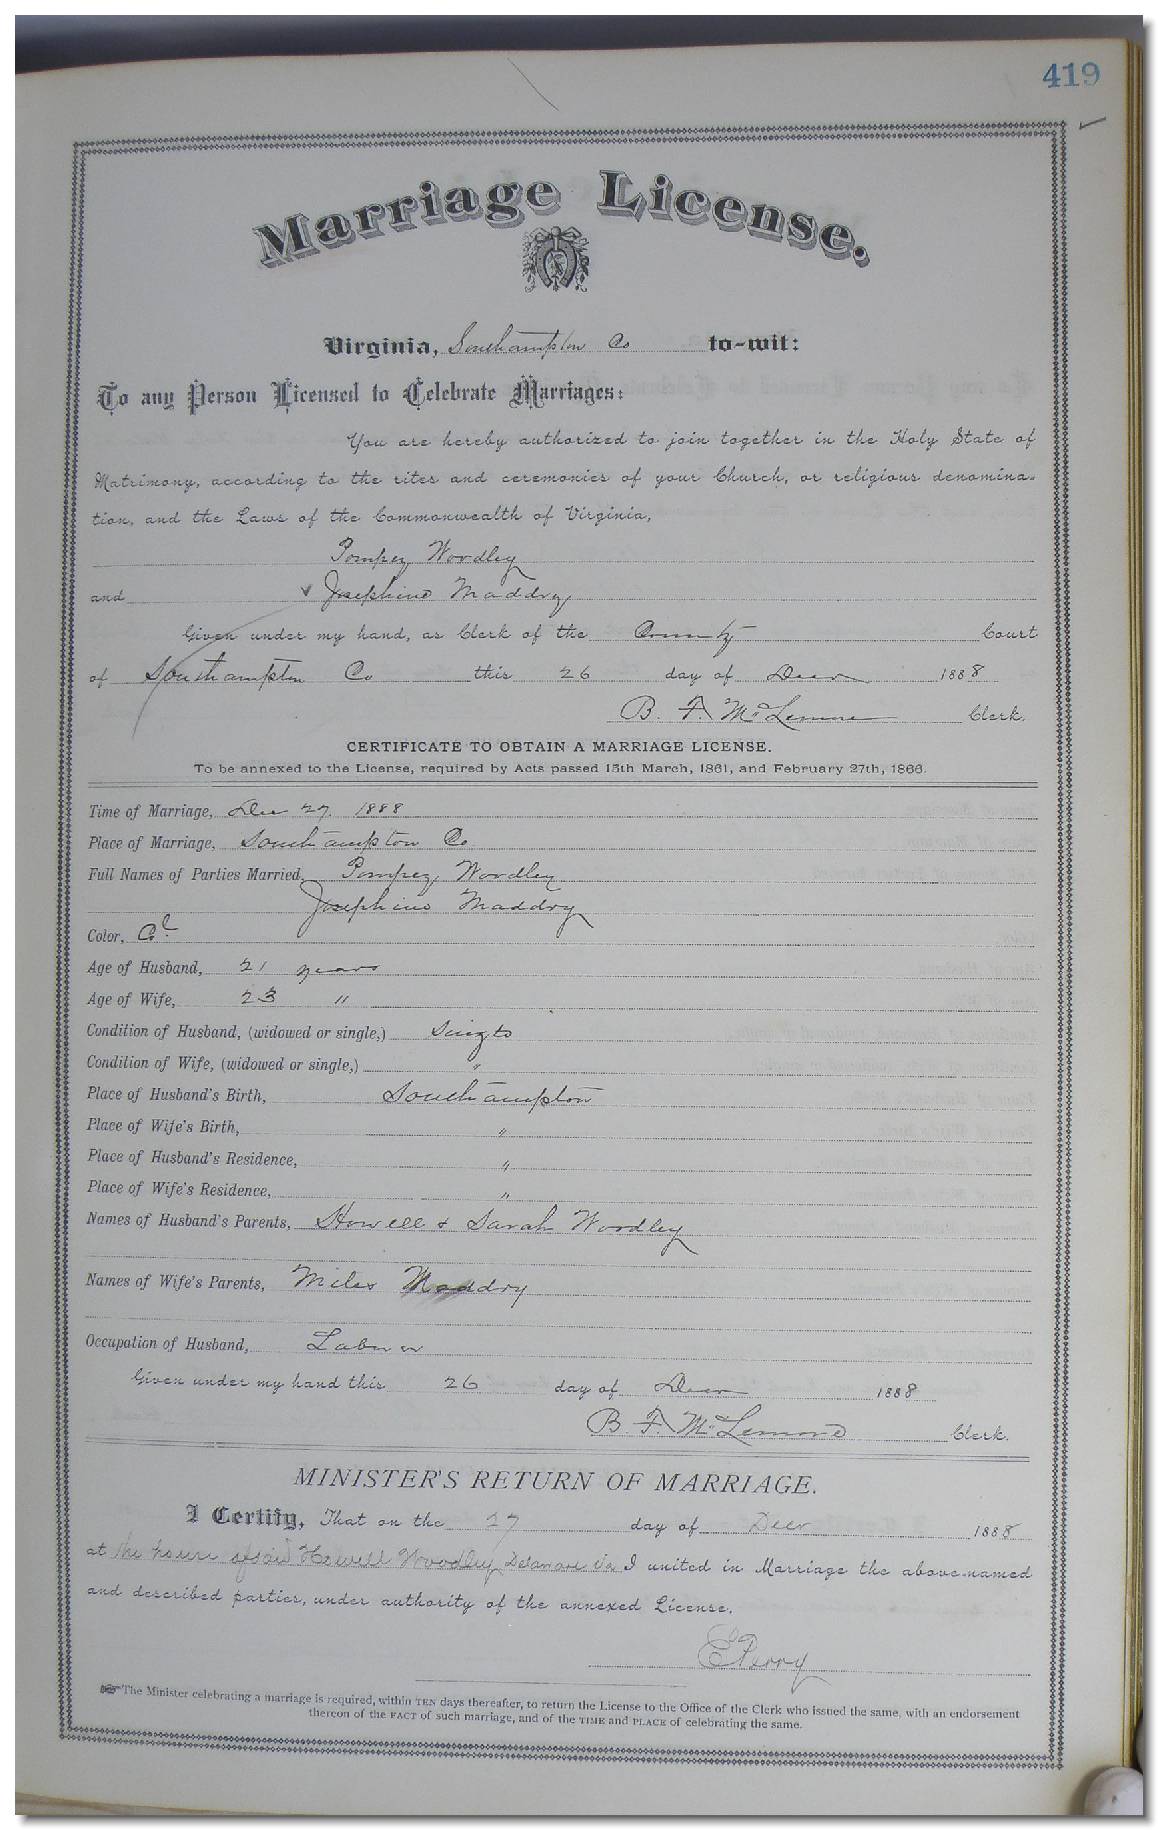 419
Marriage License.
Virginia, Southampton Co to-wit:
To any Person Licensed to Celebrate Marriages:
You are hereby authorized to join together in the Holy State of
Matrimony, according to the rites and ceremonies of your Church, or religious denomina-
tion, and the Laws of the Commonwealth of Virginia,
Pompey Woodley
and Josephine Maddry
Given under my hand, as Clerk of the County Court
of Southampton Co this 26 day of Decr 1888
B. F. McLemore Clerk.
CERTIFICATE TO OBTAIN A MARRIAGE LICENSE.
To be annexed to the License, required by Acts passed 15th March, 1861, and February 27th, 1866.
Time of Marriage, Dec 27. 1888
Place of Marriage, Southampton Co
Full Names of Parties Married, Pompey Woodley
Josephine Maddry
Color, Cd
Age of Husband, 21 years
Age of Wife, 23 "
Condition of Husband, (widowed or single,) Single
Condition of Wife, (widowed or single,) "
Place of Husband's Birth, Southampton
Place of Wife's Birth, "
Place of Husband's Residence, "
Place of Wife's Residence, "
Names of Husband's Parents, Howell & Sarah Woodley
Names of Wife's Parents, Miles Maddry
Occupation of Husband, Laborer
Given under my hand this 26 day of Decr 1888
B. F. McLemore Clerk.
MINISTER'S RETURN OF MARRIAGE.
I Certify, That on the 27 day of Decr 1888
at the house of Howell Woodley Delaware Va I united in Marriage the above-named
and described parties, under authority of the annexed License.
E Perry
☞ The Minister celebrating a marriage is required, within TEN days thereafter, to return the License to the Office of the Clerk who issued the same, with an endorsement
thereon of the FACT of such marriage, and of the TIME and PLACE of celebrating the same.